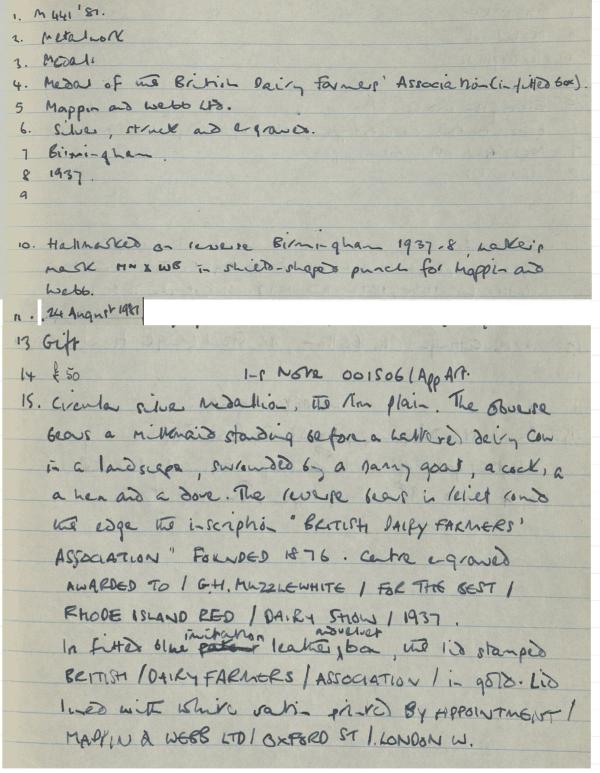 1. M441 '87.
2. Metalwork
3. Medals
4. Medal of the British Dairy Farmers' Association (in fitted box).
5 Mappin and Webb Ltd.
6. Silver, struck and engraved.
7 Birmingham.
8 1937.
9
10. Hallmarked on reverse Birmingham 1937-8, maker's
mark MN & WB in shield-shaped punch for Mappin and
Webb.
11. 24 August 1987
13 Gift
14 £50 1-5 Note 001506/App Art.
15. Circular silver medallion, the rim plain. The obverse
bears a milkmaid standing before a haltered dairy cow
in a landscape, surrounded by a nanny goat, a cock, a
a hen and a dove. The reverse bears in relief round
the edge the inscription "BRITISH DAIRY FARMERS'
ASSOCIATION" FOUNDED 1876. Centre engraved
AWARDED TO / G.H. MUZZLEWHITE / FOR THE BEST /
RHODE ISLAND RED / DAIRY SHOW / 1937.
In fitted blue imitation leather box, the lid stamped
BRITISH / DAIRY FARMERS / ASSOCIATION / in gold. Lid
lined with white satin printed BY APPOINTMENT /
MAPPIN & WEBB LTD / OXFORD ST / LONDON W.